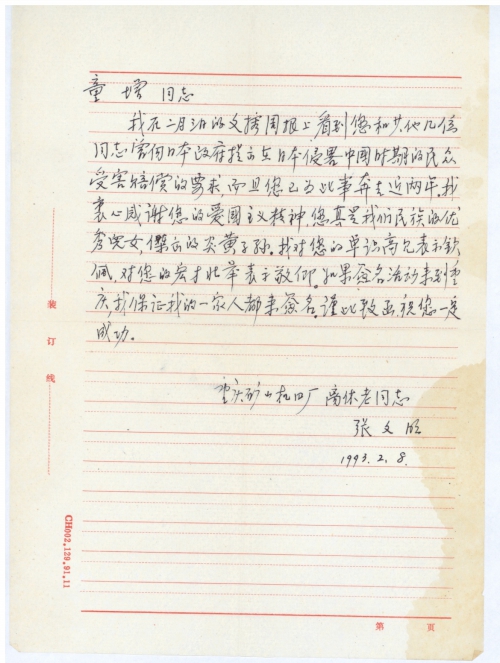 童增 同志
我在二月3日的文摘周报上看到您和其他几位
同志曾向日本政府提出在日本侵略中国时期的民众
受害赔偿的要求,而且您已为此事奔走近两年,我
衷心感谢您的爱国主义精神,您真是我们民族的优
秀儿女,杰出的炎黄子孙。我对您的单识高见表示钦
佩,对您的宏才壮举表示敬仰。如果签名活动来到重
庆,我保证我的一家人都来签名。谨此致函,祝您一定
成功。
重庆矿山机四厂 离休老同志
张文
1993.2.8.
装订线
CH002.129.91.11
第 页